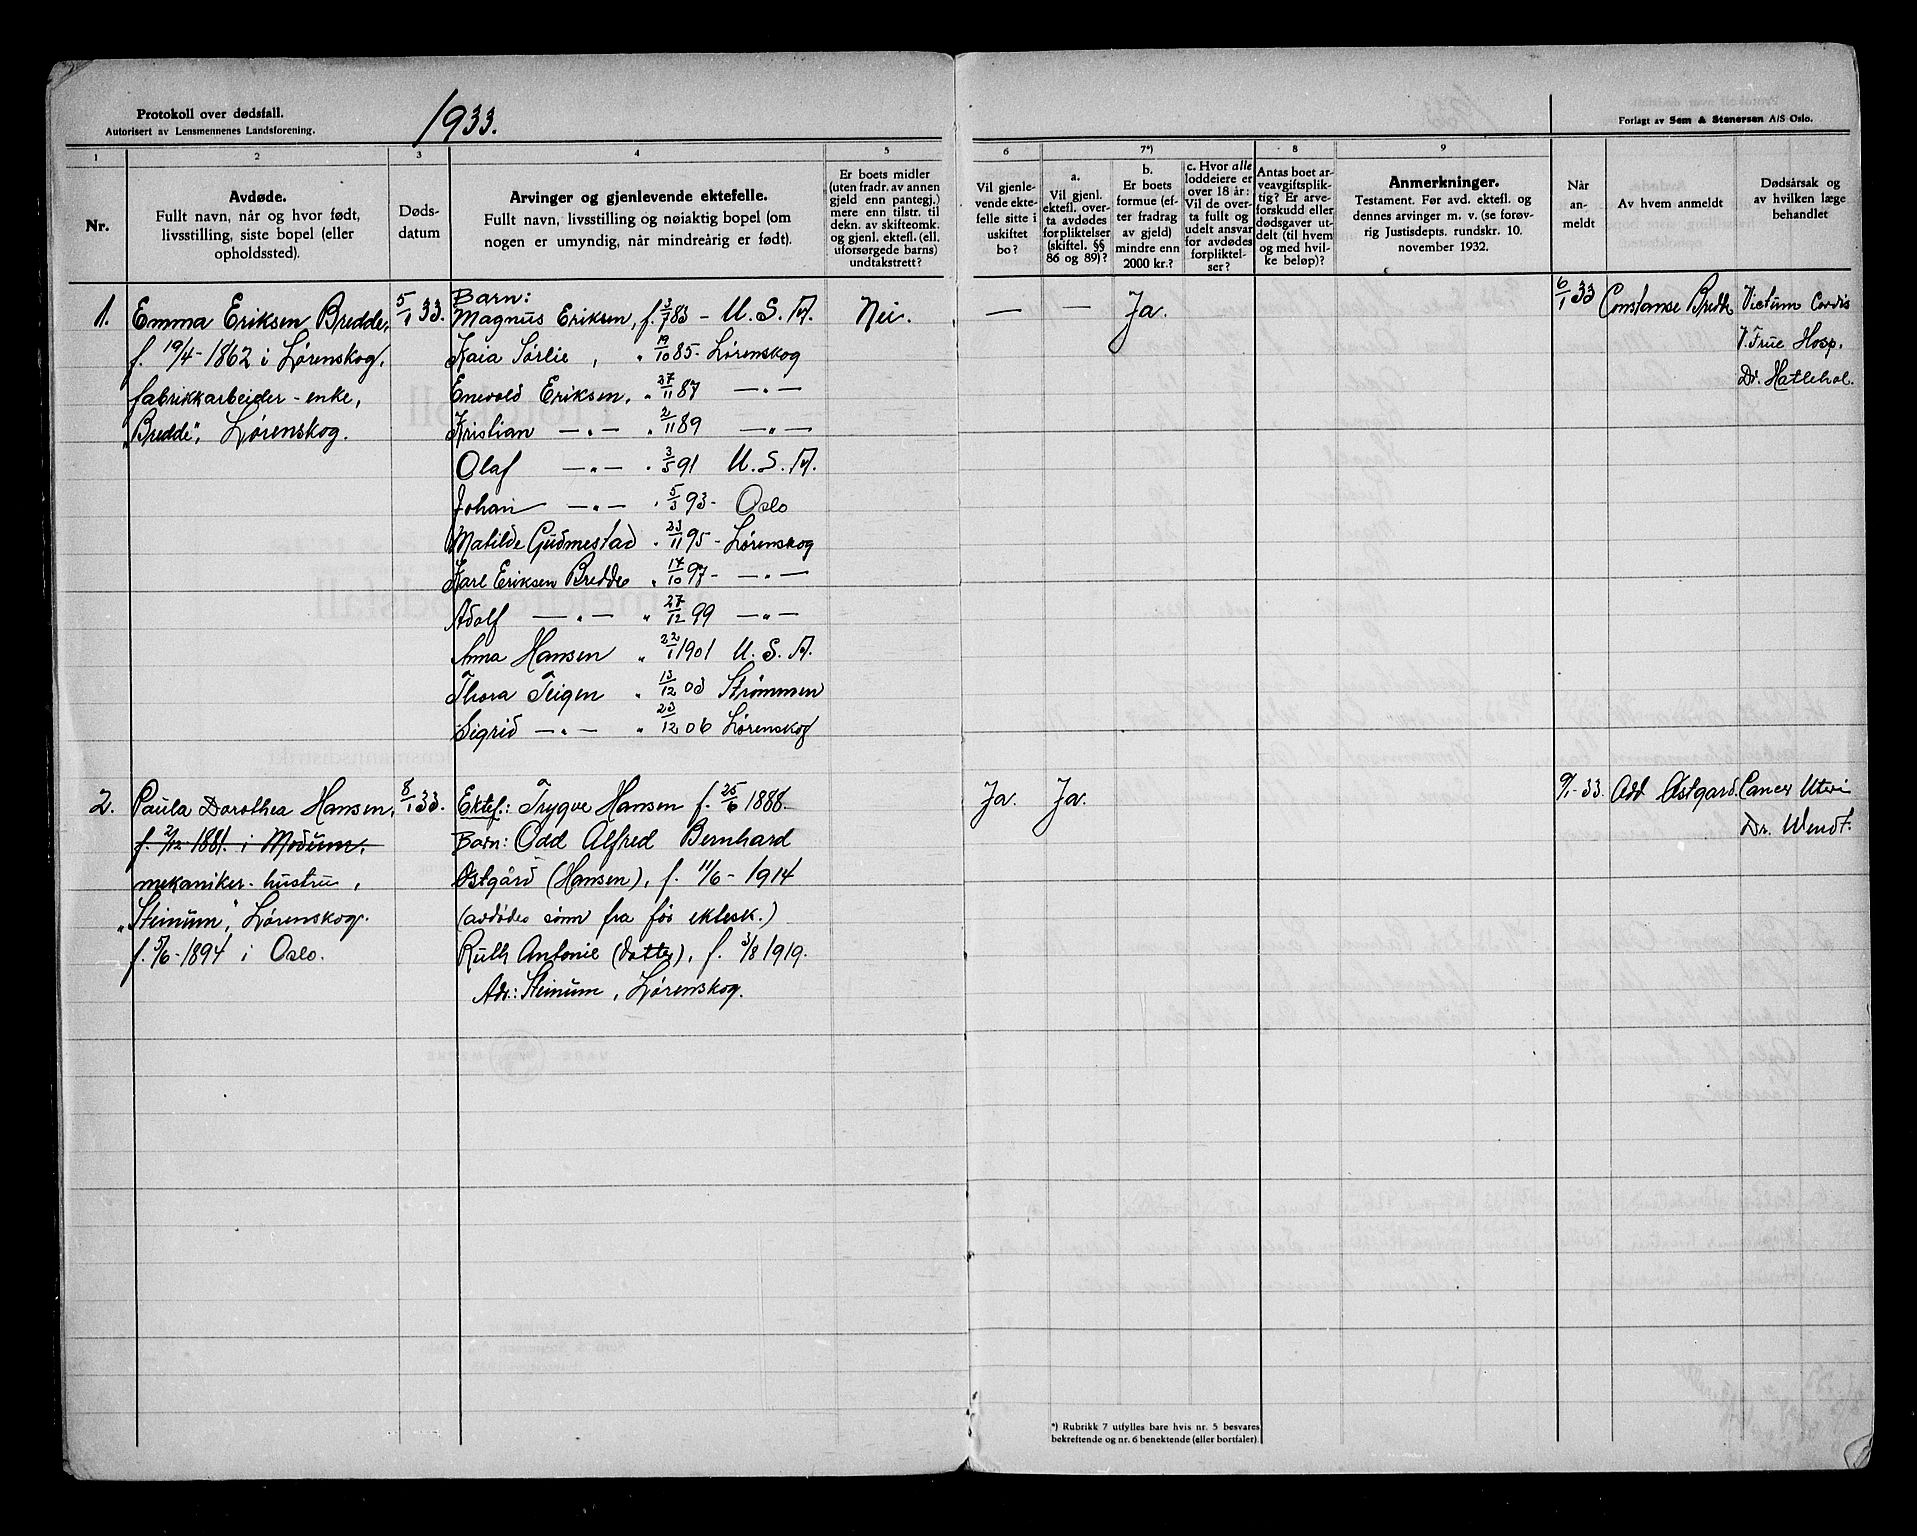 Protokoll over dødsfall.
Autorisert av Lensmennenes Landsforening.
1933.
Forlagt av Sem & Stenersen A/S Oslo.
1 2 3 4 5 6 7*) 8 9
Nr.
Avdøde.
Fullt navn, når og hvor født,
livsstilling, siste bopel (eller
opholdssted).
Døds-
datum
Arvinger og gjenlevende ektefelle.
Fullt navn, livsstilling og nøiaktig bopel (om
nogen er umyndig, når mindreårig er født).
Er boets midler
(uten fradr. av annen
gjeld enn pantegj.)
mere enn tilstr. til
dekn. av skifteomk.
og gjenl. ektefl. (ell.
uforsørgede barns)
undtakstrett?
Vil gjenle-
vende ekte-
felle sitte i
uskiftet
bo?
a.
Vil gjenl.
ektefl. over-
ta avdødes
forpliktelser
(skiftel. §§
86 og 89)?
b.
Er boets
formue (ef-
ter fradrag
av gjeld)
mindre enn
2000 kr.?
c. Hvor alle
loddeiere er
over 18 år:
Vil de over-
ta fullt og
udelt ansvar
for avdødes
forpliktel-
ser?
Antas boet ar-
veavgiftsplik-
tig? Er arve-
forskudd eller
dødsgaver ut-
delt (til hvem
og med hvil-
ke beløp)?
Anmerkninger.
Testament. Før avd. ektefl. og
dennes arvinger m. v. (se forøv-
rig Justisdepts. rundskr. 10.
november 1932.
Når
an-
meldt
Av hvem anmeldt
Dødsårsak og
av hvilken læge
behandlet
1.
Emma Eriksen Bredde,
f. 19/4-1862 i Lørenskog,
fabrikkarbeider-enke,
"Bredde", Lørenskog.
5/1 33.
Barn:
Magnus Eriksen, f. 3/7 83 - U.S.A.
Kaia Sørlie, " 19/10 85 - Lørenskog
Enevold Eriksen, " 27/11 87 —"—
Kristian —"— " 2/11 89 —"—
Olaf —"— " 3/5 91 U.S.A.
Johan —"— " 5/3 93 - Oslo
Matilde Gudmestad " 23/11 95 - Lørenskog
Karl Eriksen Bredde " 17/10 97 - —"—
Adolf —"— " 27/12 99 —"—
Anna Hansen " 22/1 1901 U.S.A.
Thora Teigen " 13/12 03 Strømmen
Sigrid —"— " 23/12 06 Lørenskog
Nei.
—
—
Ja.
6/1 33
Constanse Bredde
Victum Cordis
V. Frue Hosp.
Dr. Hatlehol.
2.
Paula Dorothea Hansen,
f. 2/12 1881. i Modum.
mekaniker-hustru,
"Steinum", Lørenskog.
f. 5/6-1894 i Oslo.
8/1 33.
Ektef.: Trygve Hansen f. 25/6 1888.
Barn: Odd Alfred Bernhard
Østgård (Hansen), f. 11/6-1914
(avdødes sønn fra før ektesk.)
Ruth Antonie (datter), f. 3/8 1919.
Adr.: Steinum, Lørenskog.
Ja.
Ja.
9/1-33.
Odd Østgard.
Cancer Uteri
Dr. Wendt.
*) Rubrikk 7 utfylles bare hvis nr. 5 besvares
bekreftende og nr. 6 benektende (eller bortfaler).